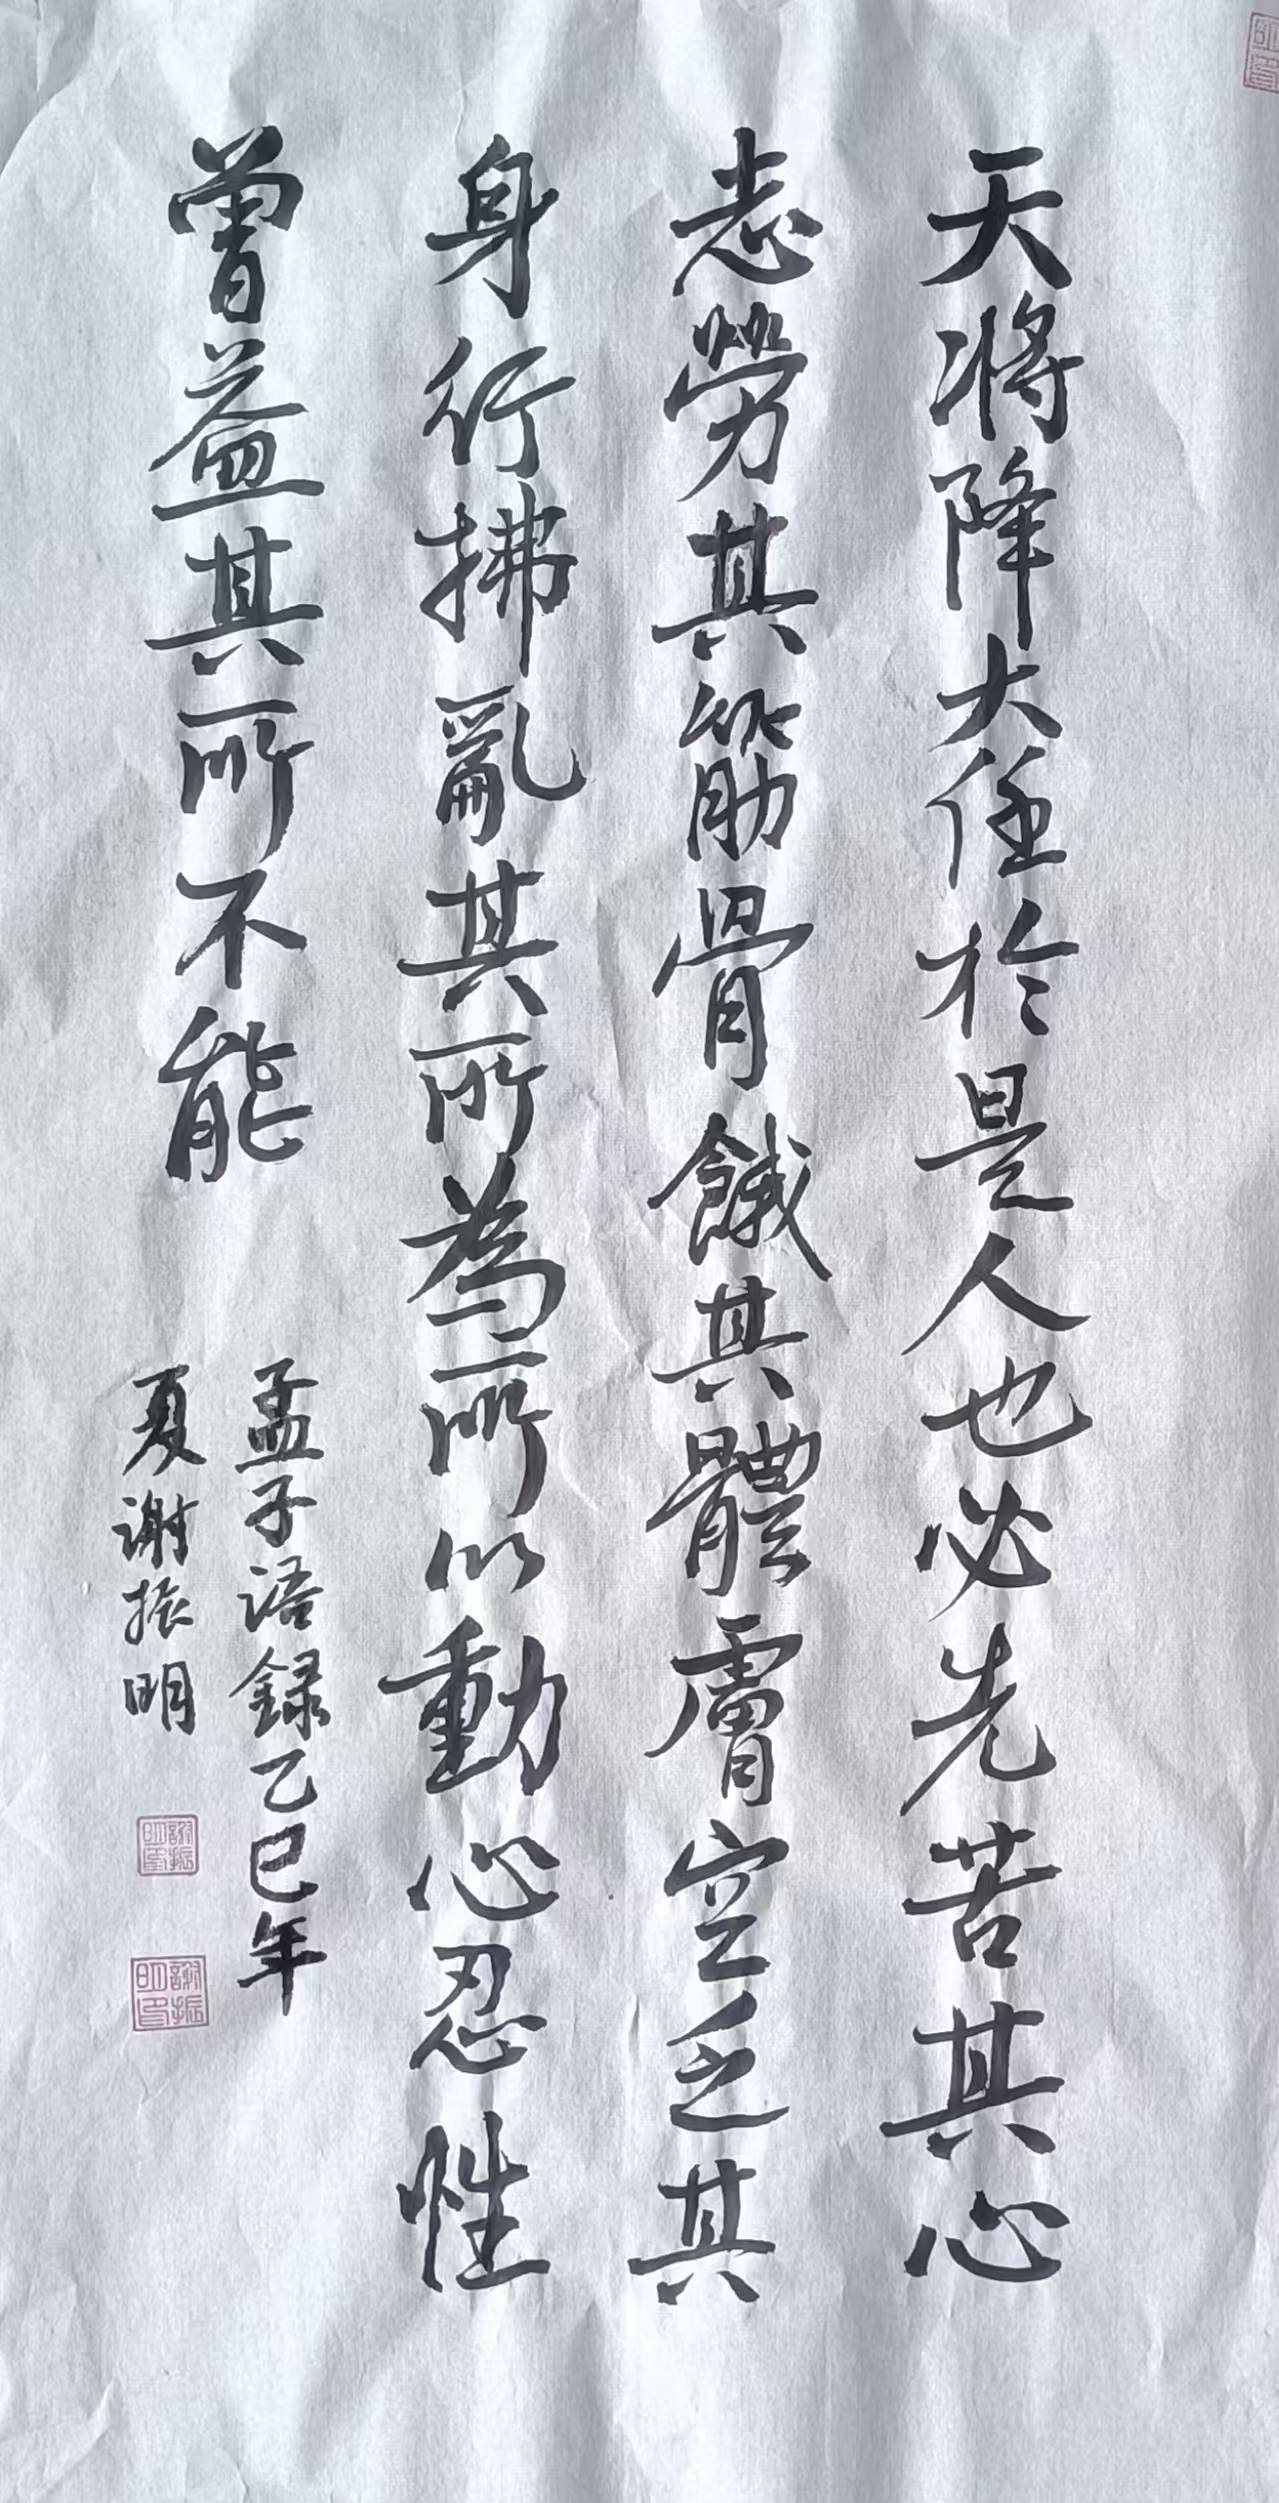 天将降大任於是人也必先苦其心
志勞其筋骨餓其體膚空乏其
身行拂亂其所為所以動心忍性
曾益其所不能
孟子语録乙巳年
夏谢振明
謝振明印
謝振明印